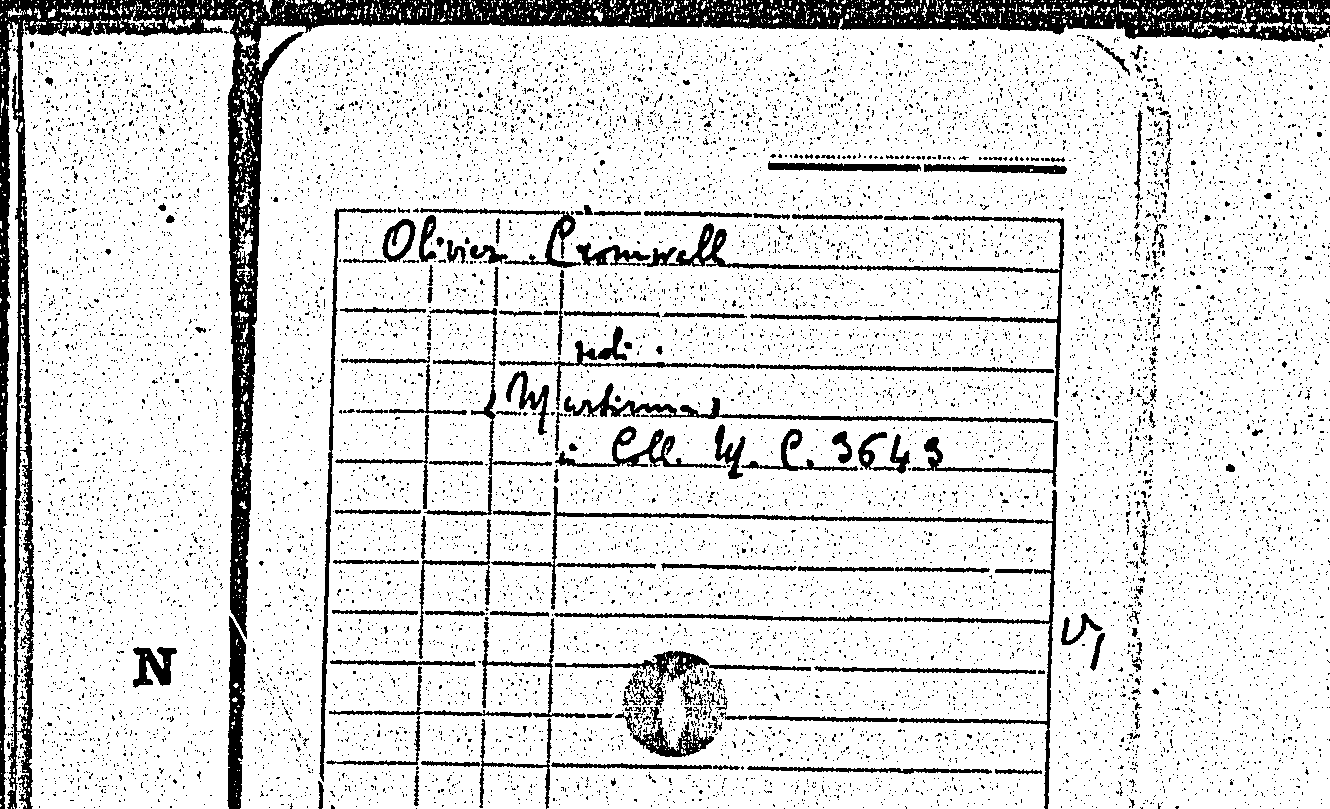 Olivier Cromwell
redi.
(Martinus)
in Coll. M. C. 3643
N